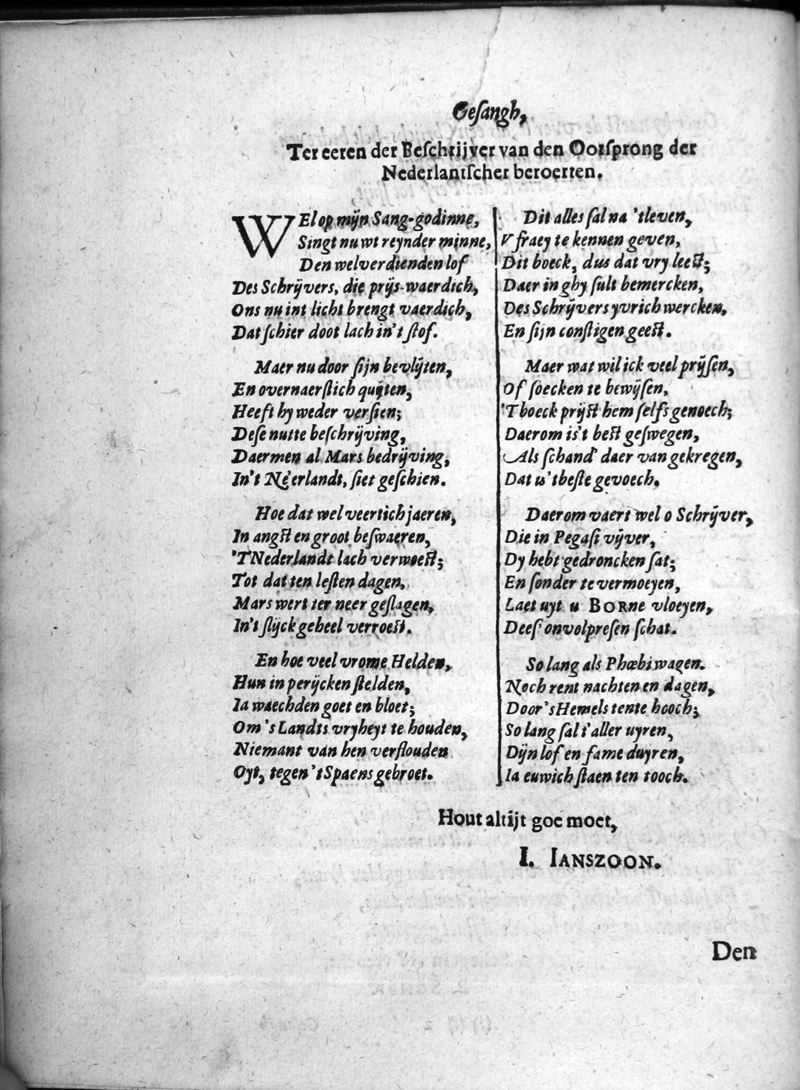 Geſangh,
Ter eeren der Beſchrijver van den Oorſprong der
Nederlantſcher beroerten.
WEl op mijn Sang-godinne,
Singt nu wt reynder minne,
Den welverdienden lof
Des Schrijvers, die prijs-waerdich,
Ons nu int licht brengt vaerdich,
Dat ſchier doot lach in't ſtof.
Maer nu door ſijn bevlijten,
En overnaerſtich quijten,
Heeft hy weder verſien;
Deſe nutte beſchrijving,
Daermen al Mars bedrijving,
In't Neerlandt, ſiet geſchien.
Hoe dat wel veertich jaeren,
In angſt en groot beſwaeren,
'TNederlandt lach verwoeſt;
Tot dat ten leſten dagen,
Mars wert ter neer geſlagen,
In't ſlijck geheel verroeſt.
En hoe veel vrome Helden,
Hun in perijcken ſtelden,
Ia waechden goet en bloet;
Om 's Landts vryheyt te houden,
Niemant van hen verflouden
Oyt, tegen 't Spaens gebroet.
Dit alles ſal na 'tleven,
V fraey te kennen geven,
Dit boeck, dus dat vry leeſt;
Daer in ghy ſult bemercken,
Des Schrijvers yvrich wercken,
En ſijn conſtigen geeſt.
Maer wat wil ick veel prijſen,
Of ſoecken te bewijſen,
'T boeck prijſt hem ſelfs genoech;
Daerom is't beſt geſwegen,
Als ſchand' daer van gekregen,
Dat u 't beſte gevoech.
Daerom vaert wel o Schrijver,
Die in Pegaſi vijver,
Dy hebt gedroncken ſat;
En ſonder te vermoeyen,
Laet uyt u BORne vloeyen,
Deeſ' onvolpreſen ſchat.
So lang als Phœbi wagen.
Noch rent nachten en dagen,
Door 's Hemels tente hooch;
So lang ſal t'aller uyren,
Dijn lof en fame duyren,
Ia euwich ſtaen ten tooch.
Hout altijt goe moet,
I. IANSZOON.
Den